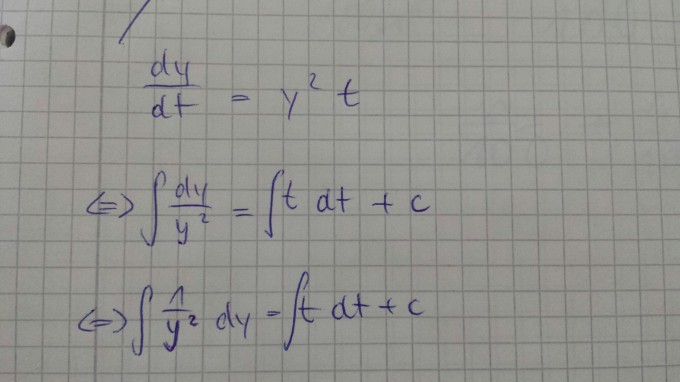 dy/dt = y² t
⇔ ∫ dy/y² = ∫ t dt + c
⇔ ∫ 1/y² dy = ∫ t dt + c